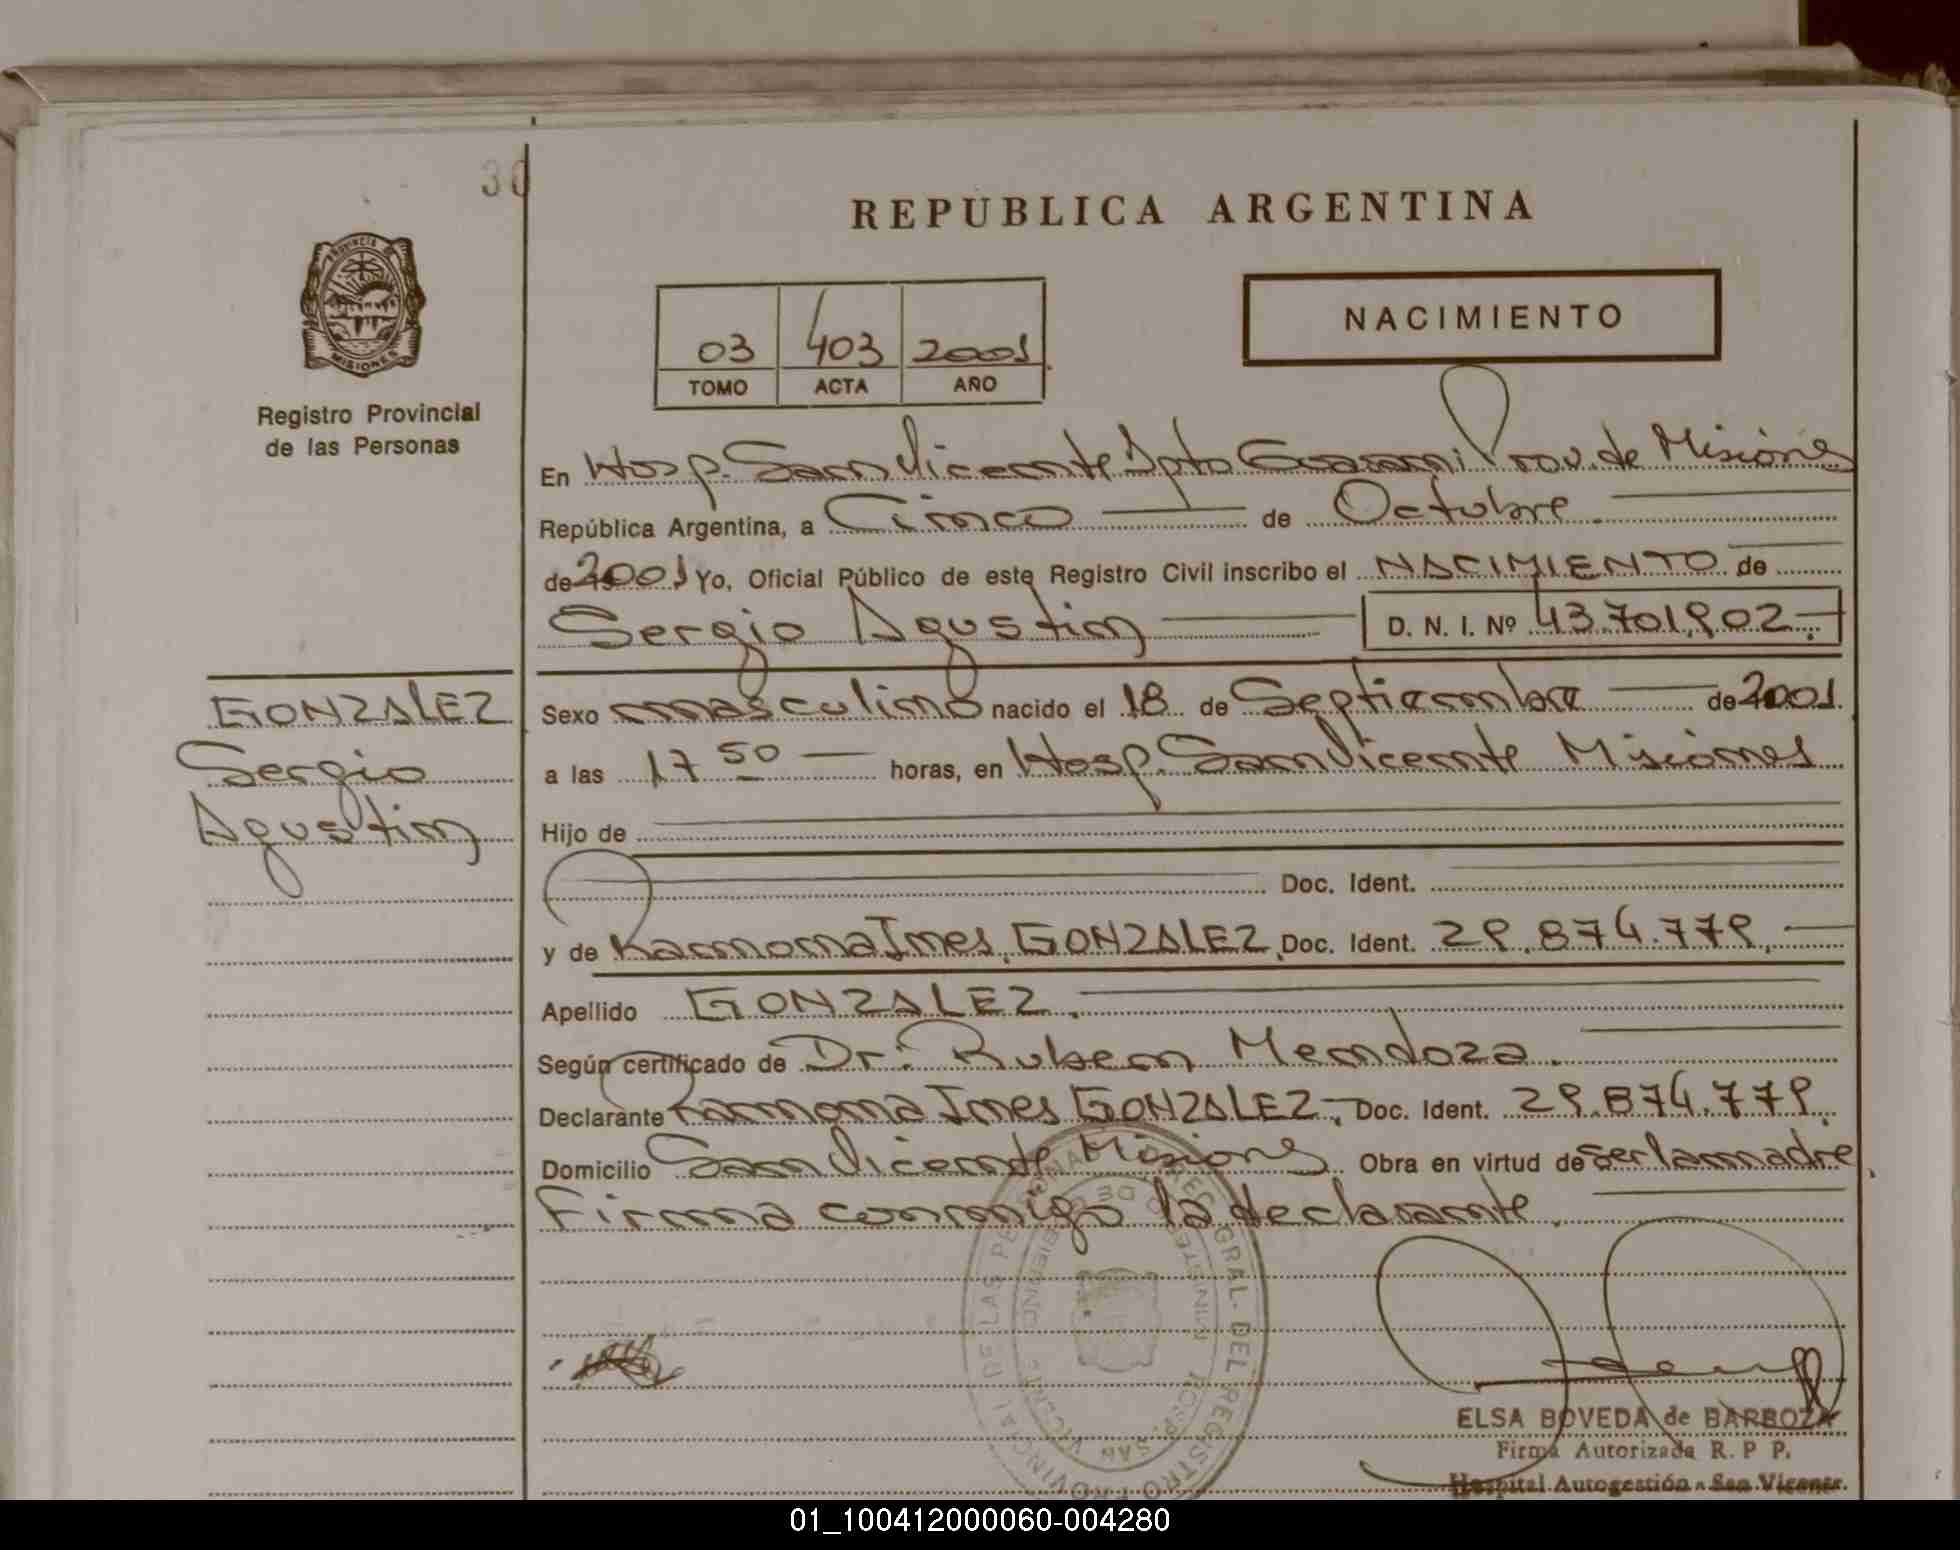 30
REPUBLICA ARGENTINA
PROVINCIA DE
MISIONES
Registro Provincial
de las Personas
03 403 2001
TOMO ACTA AÑO
NACIMIENTO
En Hosp. San Vicente Dpto Guarani Prov. de Misiones
República Argentina, a Cinco de Octubre
de 2001 Yo, Oficial Público de este Registro Civil inscribo el NACIMIENTO de
Sergio Agustin D. N. I. Nº 43.701.902.-
GONZALEZ
Sergio
Agustin
Sexo masculino nacido el 18 de Septiembre de 2001.
a las 17 50 horas, en Hosp. San Vicente Misiones
Hijo de
Doc. Ident.
y de Ramona Ines GONZALEZ, Doc. Ident. 29.874.779.
Apellido GONZALEZ.
Según certificado de Dr: Ruben Mendoza.
Declarante Ramona Ines GONZALEZ, Doc. Ident. 29.874.779.
Domicilio San Vicente Misiones Obra en virtud de ser la madre,
Firma conmigo la declarante.
ELSA BOVEDA de BARBOZA
Firma Autorizada R. P P.
Hospital Autogestión - San Vicente.
01_100412000060-004280